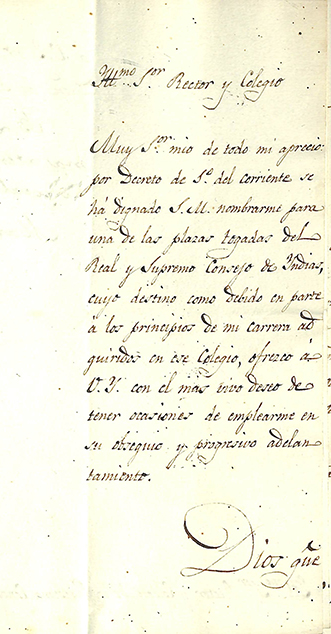 Yllmo Sor Rector y Colegio
Muy Sor mio de todo mi aprecio:
por Decreto de 5o del corriente se
há dignado S. M. nombrarme para
una de las plazas togadas del
Real y Supremo Consejo de Indias,
cuyo destino como debido en parte
á los principios de mi carrera ad
quiridos en ese Colegio, ofrezco á
V. Y. con el mas vivo deseo de
tener ocasiones de emplearme en
su obsequio y progresivo adelan
tamiento.
Dios gũe